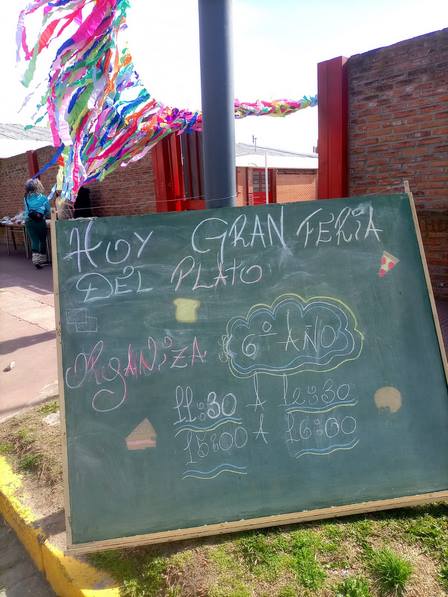 HOY GRAN FERIA
DEL PLATO
ORGANIZA 6º AÑOS
11:30 A 12:30
15:00 A 16:00